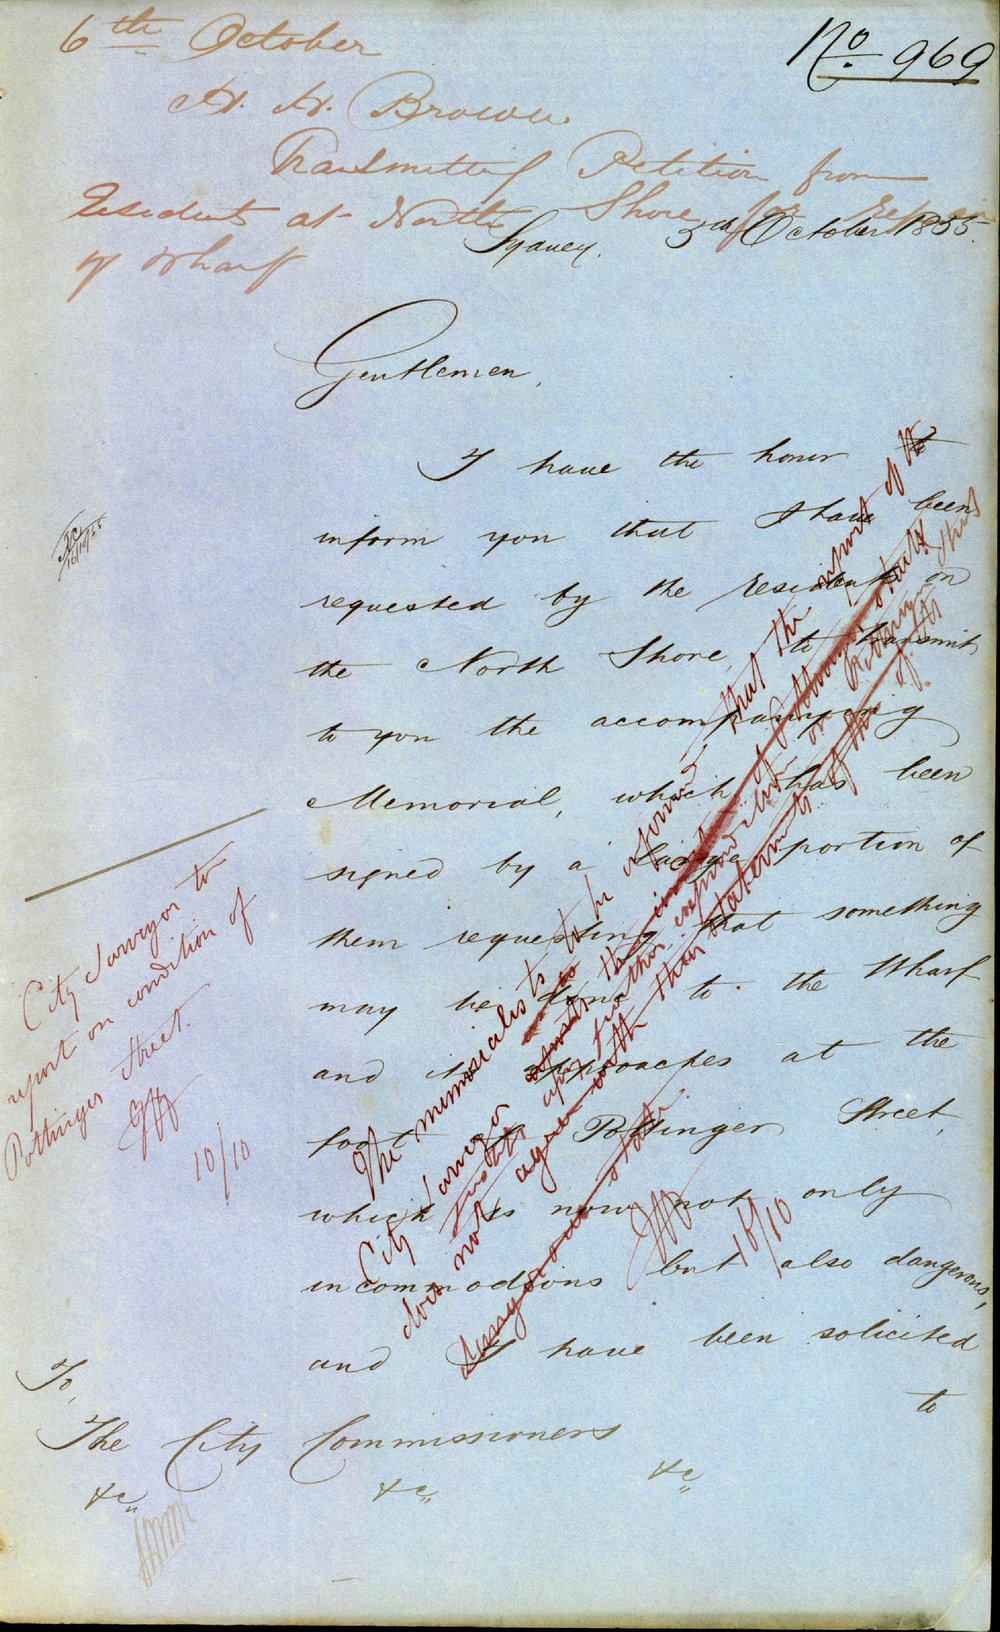 6th October
No. 969
H. H. Browne
Transmitting Petition from
Residents at North Shore for repair
of Wharf
Sydney. 5th October 1855.
Gentlemen,
I have the honor to
inform you that I have been
requested by the residents on
the North Shore, to transmit
to you the accompanying
Memorial, which has been
signed by a large portion of
them requesting that something
may be done to the Wharf
and its approaches at the
foot of Pottinger Street,
which is now not only
incommodious but also dangerous,
and I have been solicited
to
To,
The City Commissioners
&c &c &c
10/10/55
City Surveyor to
report on condition of
Pottinger Street.
10/10
The memorialists to be informed that the report of the
City Surveyor of Pottinger Street
does not further expenditure on Pottinger
agree with their statements of the
state
18/10